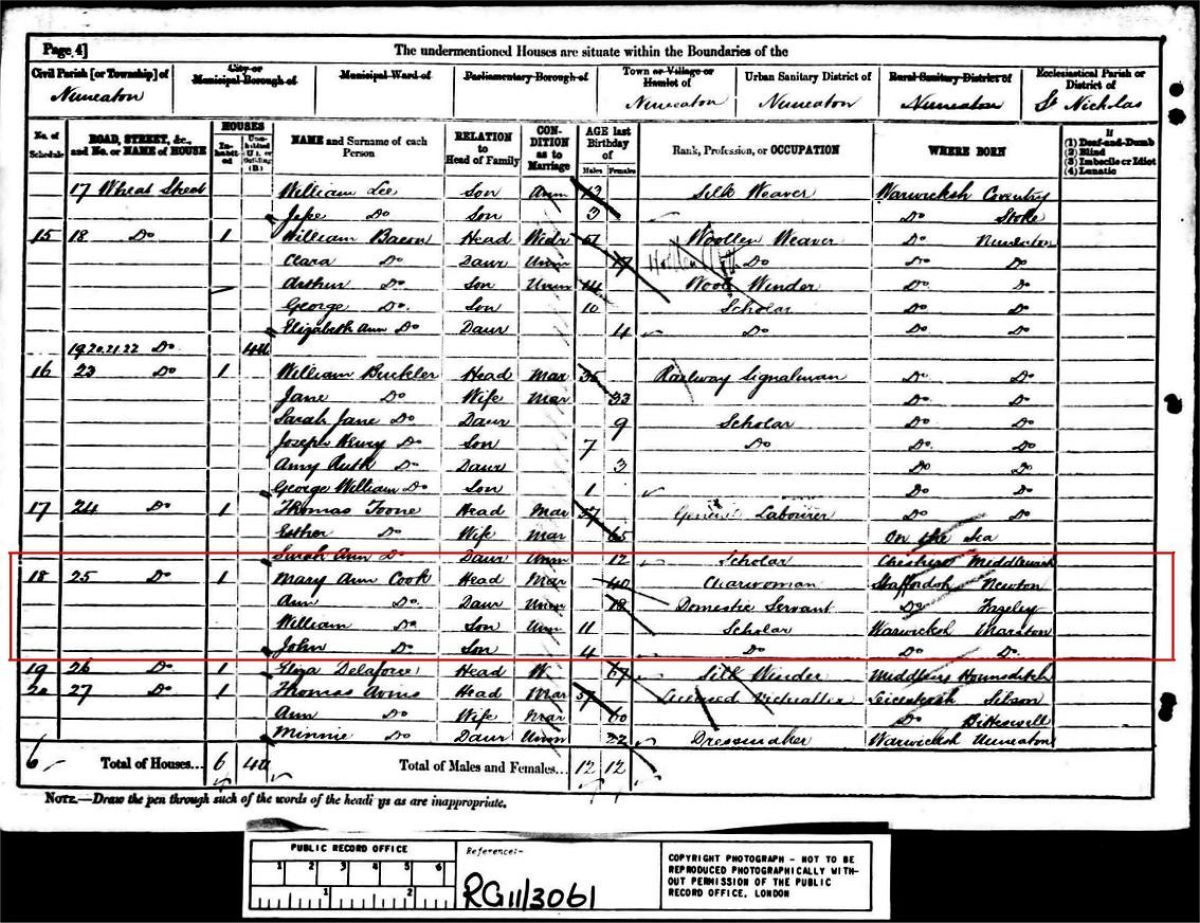 Page 4]
The undermentioned Houses are situate within the Boundaries of the
Civil Parish [or Township] of
City or Municipal Borough of
Municipal Ward of
Parliamentary Borough of
Town or Village or Hamlet of
Urban Sanitary District of
Rural Sanitary District of
Ecclesiastical Parish or District of
Nuneaton Nuneaton Nuneaton Nuneaton St Nicholas
No. of Schedule
ROAD, STREET, &c., and No. or NAME of HOUSE
HOUSES
Inhabited
NAME and Surname of each Person
RELATION to Head of Family
CONDITION as to Marriage
AGE last Birthday of
Males Females
Rank, Profession, or OCCUPATION
WHERE BORN
If
(1) Deaf-and-Dumb
(2) Blind
(3) Imbecile or Idiot
(4) Lunatic
17 Wheat Street William Lee Son Unm 13 Silk Weaver Warwicksh Coventry
Do Son 3 Do Stoke
15 18 Do 1 William Bacon Head Widr Woollen Weaver Do Nuneaton
Clara Do Daur Unm 17 Do Do Do
Arthur Do Son Unm 14 Wool Winder Do Do
George Do Son 10 Scholar Do Do
Elizabeth Ann Do Daur 4 Do Do Do
19.20.21.22 Do 4U
16 23 Do 1 William Buckler Head Mar 35 Railway Signalman Do Do
Jane Do Wife Mar 33 Do Do
Sarah Jane Do Daur 9 Scholar Do Do
Joseph Henry Do Son 7 Do Do Do
Amy Ruth Do Daur 3 Do Do
George William Do Son 1 Do Do
17 24 Do 1 Thomas Toone Head Mar 57 General Labourer Do Do
Esther Do Wife Mar 65 On the Sea
Sarah Ann Do Daur Unm 12 Scholar Cheshire Middlewich
18 25 Do 1 Mary Ann Cook Head Mar 40 Charwoman Staffordsh Newton
Ann Do Daur Unm 18 Domestic Servant Do Fazeley
William Do Son Unm 11 Scholar Warwicksh Marston
John Do Son 4 Do Do Do
19 26 Do 1 Eliza Delaforce Head W. 67 Silk Winder Middlesex Houndsditch
20 27 Do 1 Thomas Avins Head Mar 57 Licensed Victualler Leicestersh Sibson
Ann Do Wife Mar 60 Do Bitteswell
Minnie Do Daur Unm 22 Dressmaker Warwicksh Nuneaton
6 Total of Houses... 6 4U Total of Males and Females... 12 12
NOTE.—Draw the pen through such of the words of the headings as are inappropriate.
PUBLIC RECORD OFFICE
1 2 3 4 5 6
1 2
Reference:-
RG11/3061
COPYRIGHT PHOTOGRAPH - NOT TO BE
REPRODUCED PHOTOGRAPHICALLY WITH-
OUT PERMISSION OF THE PUBLIC
RECORD OFFICE, LONDON